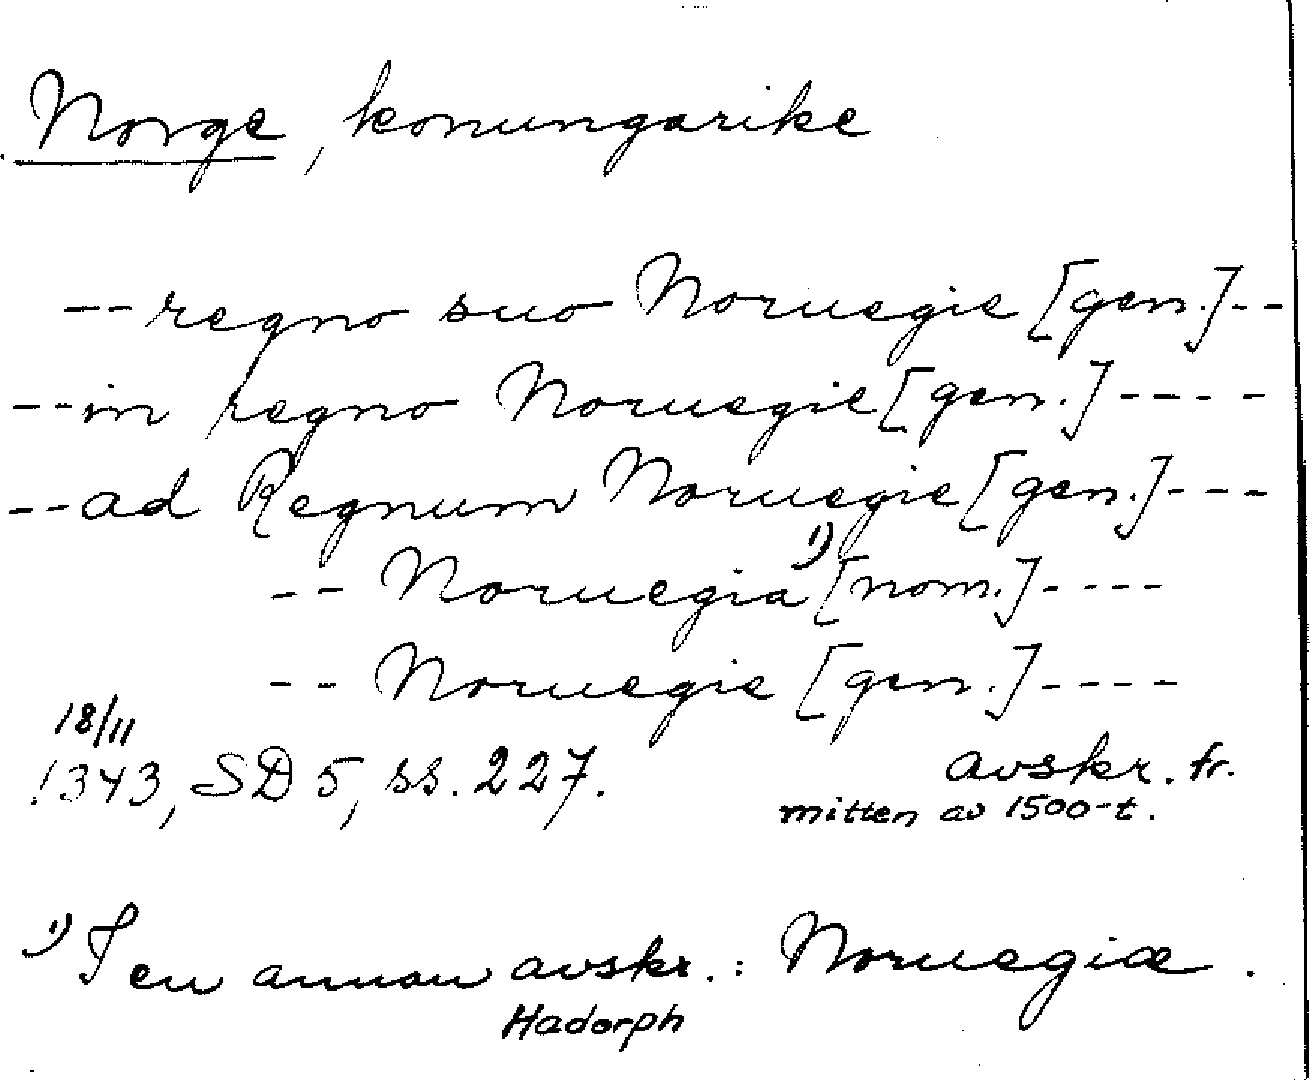 Norge, konungarike
-- regno suo Noruegie [gen.] --
-- in regno Noruegie [gen.] ----
-- ad Regnum Noruegie [gen.] ---
-- Noruegia 1) [nom.] ----
-- Noruegie [gen.] ----
18/11
1343, SD 5, ss. 227. avskr. fr.
mitten av 1500-t.
1) I en annan avskr.: Noruegiæ.
Hadorph